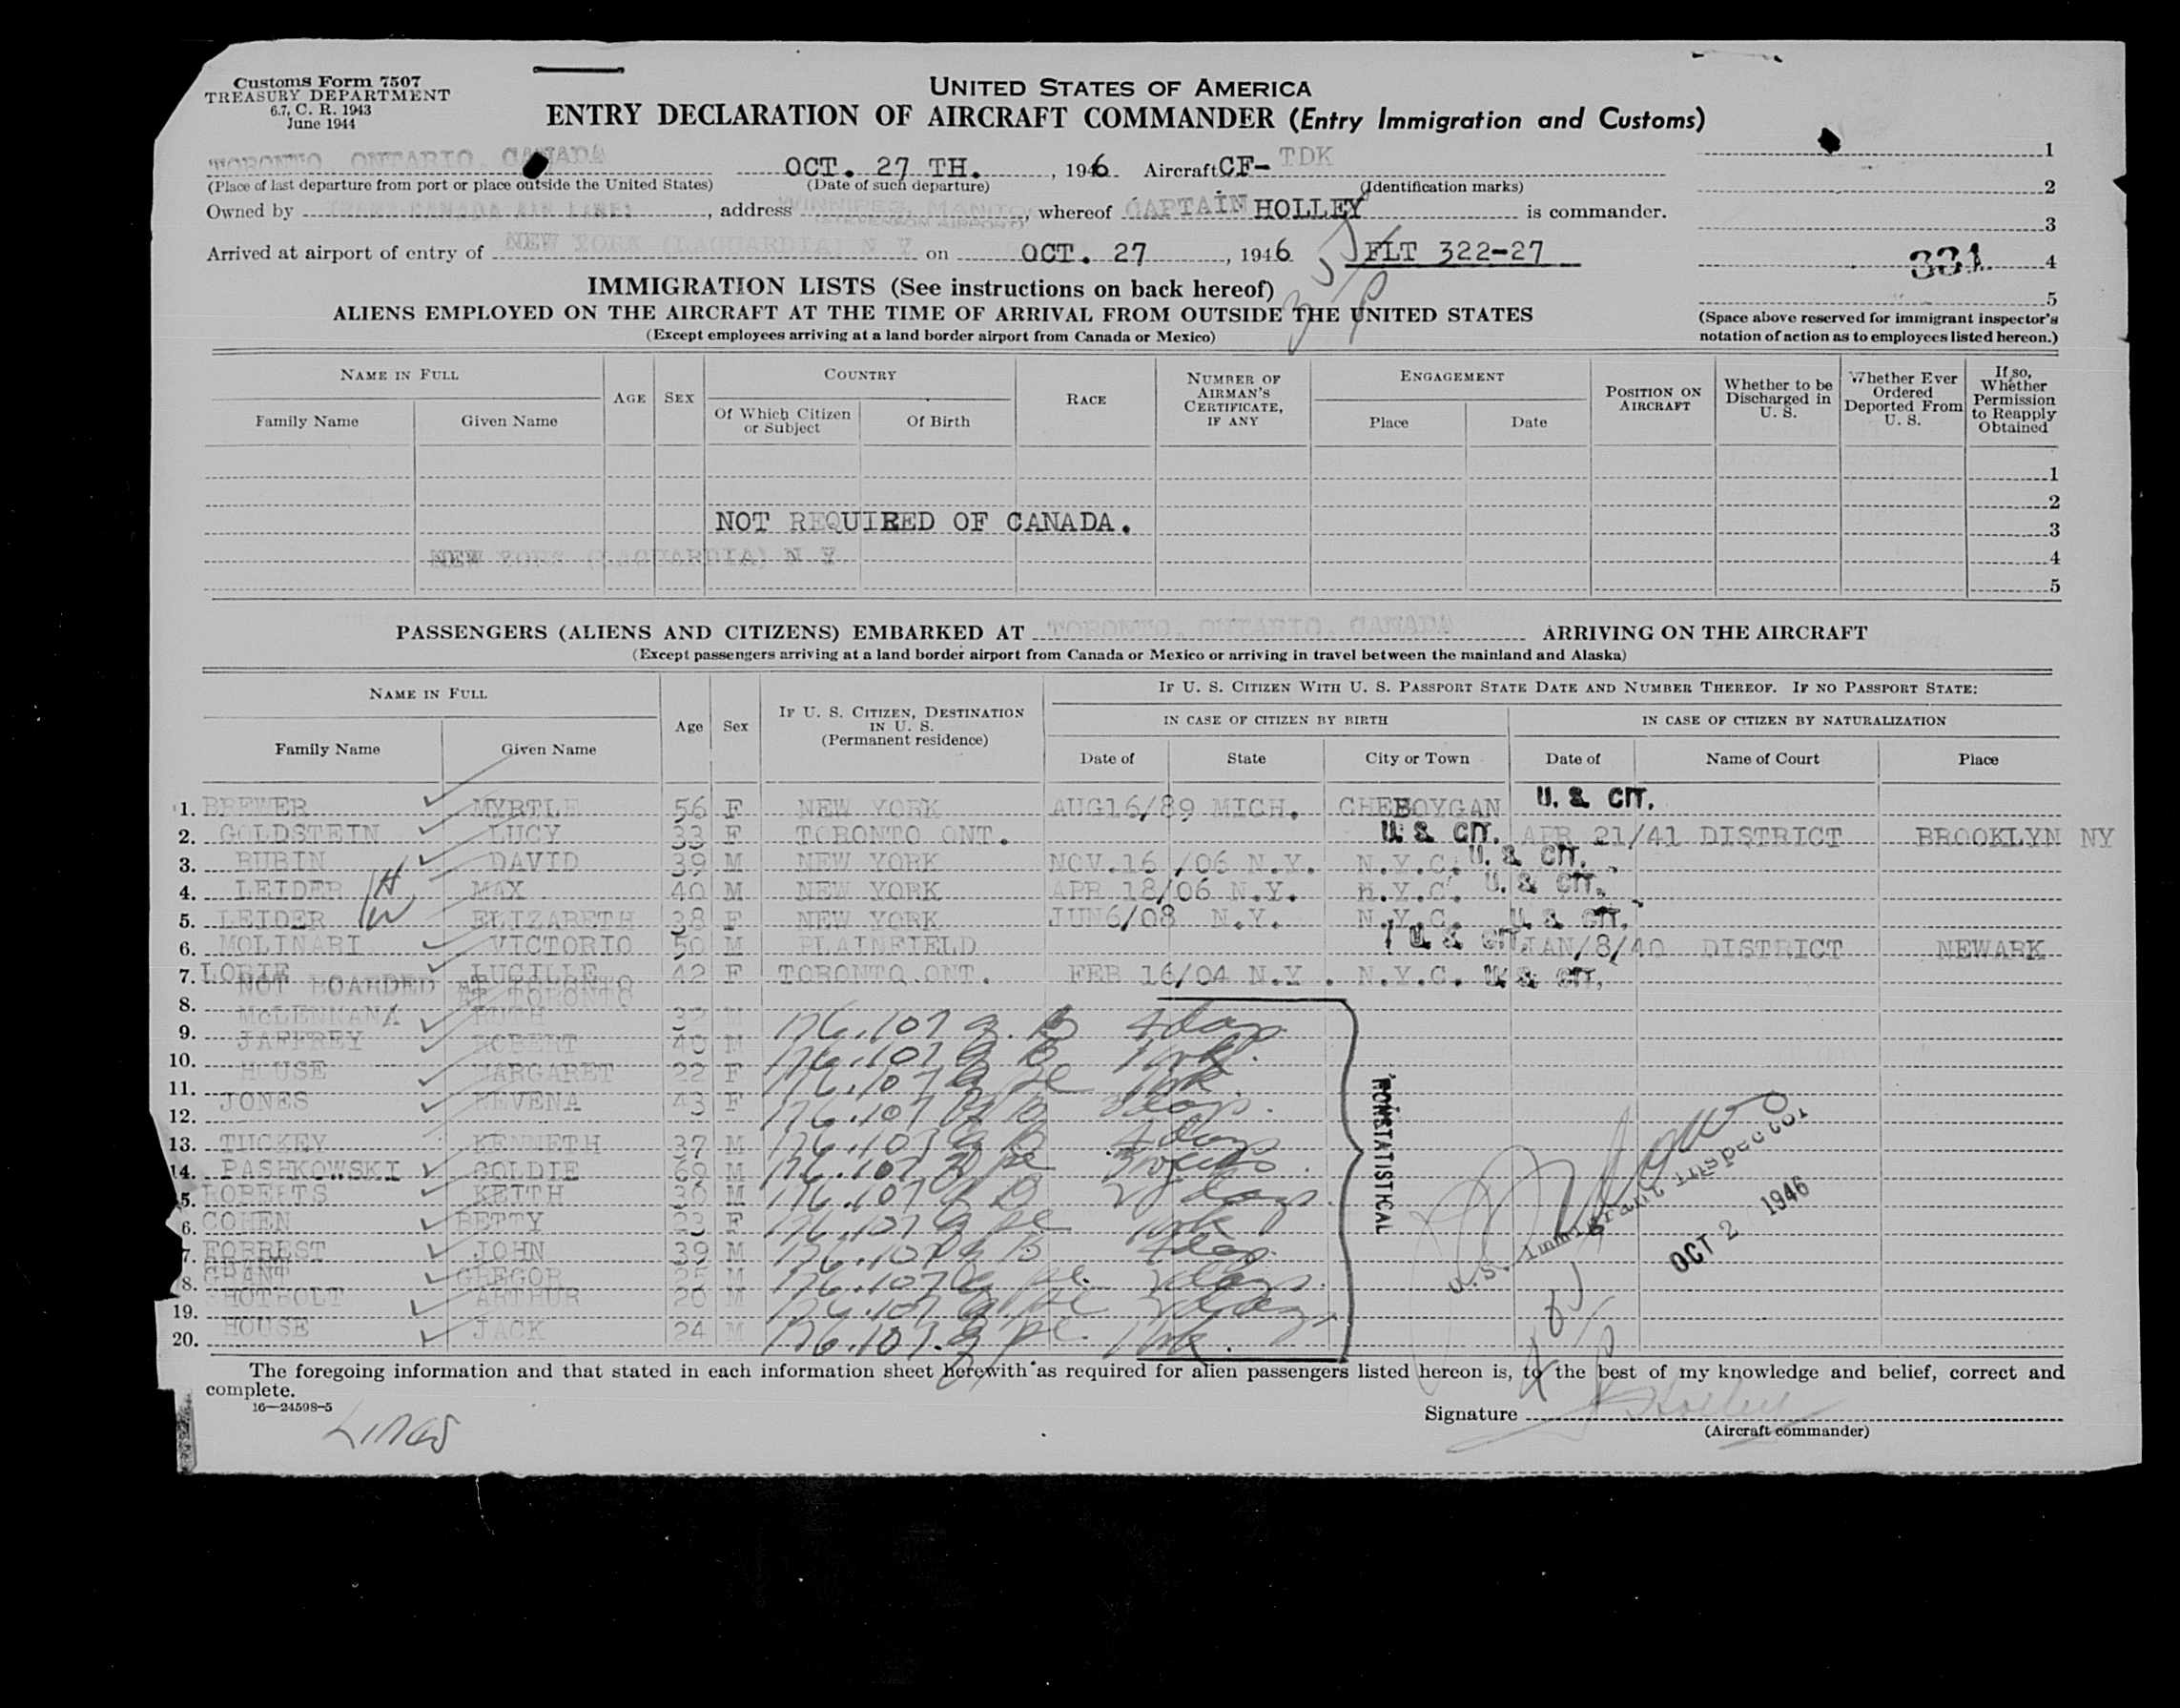 Customs Form 7507
TREASURY DEPARTMENT
6.7, C. R. 1943
June 1944
UNITED STATES OF AMERICA
ENTRY DECLARATION OF AIRCRAFT COMMANDER (Entry Immigration and Customs)
TORONTO, ONTARIO, CANADA OCT. 27 TH., 1946 Aircraft CF- TDK 1
(Place of last departure from port or place outside the United States) (Date of such departure) (Identification marks) 2
Owned by TRANS CANADA AIR LINES, address WINNIPEG, whereof CAPTAIN HOLLEY is commander. 3
(STEVENSON AIRPORT)
Arrived at airport of entry of NEW YORK (LAGUARDIA) N Y on OCT. 27, 1946 FLT 322-27 331. 4
IMMIGRATION LISTS (See instructions on back hereof) 5
ALIENS EMPLOYED ON THE AIRCRAFT AT THE TIME OF ARRIVAL FROM OUTSIDE THE UNITED STATES
(Except employees arriving at a land border airport from Canada or Mexico)
(Space above reserved for immigrant inspector's notation of action as to employees listed hereon.)
NAME IN FULL AGE SEX COUNTRY RACE NUMBER OF AIRMAN'S CERTIFICATE, IF ANY ENGAGEMENT POSITION ON AIRCRAFT Whether to be Discharged in U. S. Whether Ever Ordered Deported From U. S. If so, Whether Permission to Reapply Obtained
Family Name Given Name Of Which Citizen or Subject Of Birth Place Date
1
2
NOT REQUIRED OF CANADA. 3
NEW YORK (LAGUARDIA) N Y 4
5
PASSENGERS (ALIENS AND CITIZENS) EMBARKED AT TORONTO, ONTARIO, CANADA ARRIVING ON THE AIRCRAFT
(Except passengers arriving at a land border airport from Canada or Mexico or arriving in travel between the mainland and Alaska)
NAME IN FULL Age Sex IF U. S. CITIZEN, DESTINATION IN U. S. (Permanent residence) IF U. S. CITIZEN WITH U. S. PASSPORT STATE DATE AND NUMBER THEREOF. IF NO PASSPORT STATE:
IN CASE OF CITIZEN BY BIRTH IN CASE OF CITIZEN BY NATURALIZATION
Family Name Given Name Date of State City or Town Date of Name of Court Place
1. BREWER MYRTLE 56 F NEW YORK AUG16/89 MICH. CHEBOYGAN U. S. CIT.
2. GOLDSTEIN LUCY 33 F TORONTO ONT. U. S. CIT. APR 21/41 DISTRICT BROOKLYN NY
3. RUBIN DAVID 39 M NEW YORK NOV.16 /06 N.Y. N.Y.C. U. S. CIT.
4. LEIDER H MAX 40 M NEW YORK APR 18/06 N.Y. N.Y.C. U. S. CIT.
5. LEIDER W ELIZABETH 38 F NEW YORK JUN6/08 N.Y. N.Y.C. U. S. CIT.
6. MOLINARI VICTORIO 50 M PLAINFIELD U. S. CIT JAN/8/40 DISTRICT NEWARK
7. LORIE LUCILLE 42 F TORONTO.ONT. FEB 16/04 N.Y. N.Y.C. U. S. CIT.
NOT BOARDED AT TORONTO
8. MCLENNAN RUTH
9. JAFFREY ROBERT 40 M 176.107
10. HOUSE MARGARET 22 F 176.107
11. JONES 43 F 176.107
12. 176.107
13. TUCKEY KENNETH 37 M 176.107 4 days
14. PASHKOWSKI GOLDIE 69 M 176.107
5. ROBERTS KEITH 30 M 176.107
6. COHEN BETTY 23 F 176.107
7. FORREST JOHN 39 M 176.107
8. GRANT GREGOR 25 M 176.107
19. SHOTBOLT ARTHUR 26 M 176.107
20. HOUSE JACK 24 M 176.107
NONSTATISTICAL
U.S. Immigrant Inspector
OCT 2 1946
The foregoing information and that stated in each information sheet herewith as required for alien passengers listed hereon is, to the best of my knowledge and belief, correct and
complete.
16—24598-5
Signature Holley
(Aircraft commander)